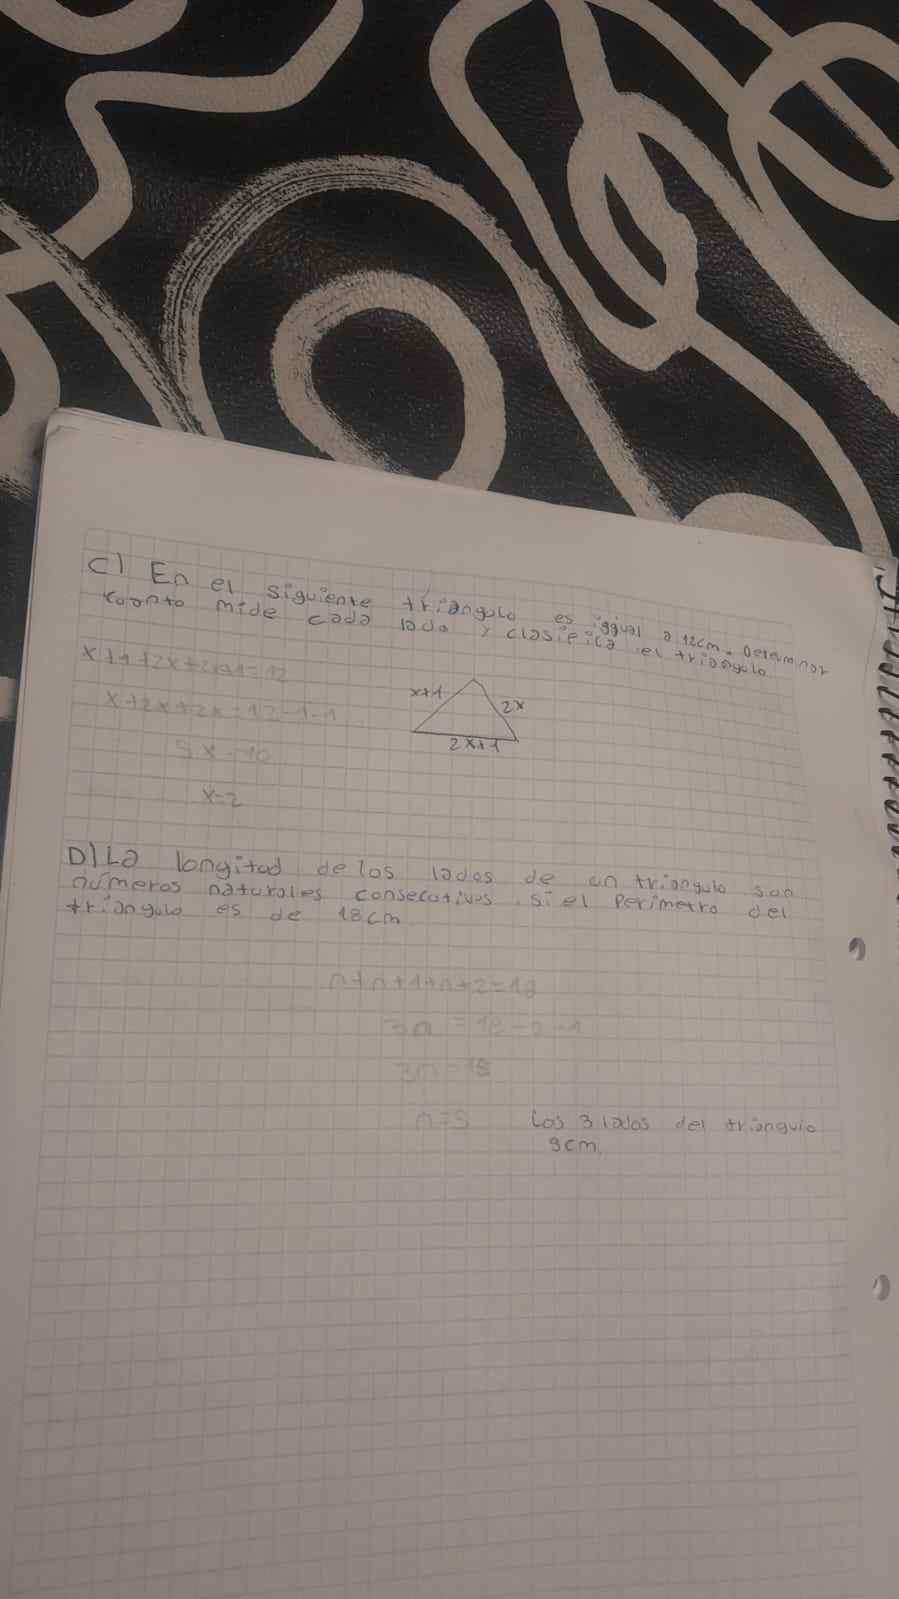 C) En el siguiente triangulo es iggual a 12cm. Determinar
cuanto mide cada lado y clasifica el triangulo
x+1+2x+2x+1=12
x+1
2x
x+2x+2x=12-1-1
2x+1
5x=10
x=2
D) La longitud de los lados de un triangulo son
números naturales consecutivos. si el perimetro del
triangulo es de 18cm
n+n+1+n+2=18
3n=18-2-1
n=5
Los 3 lados del triangulo
9cm.